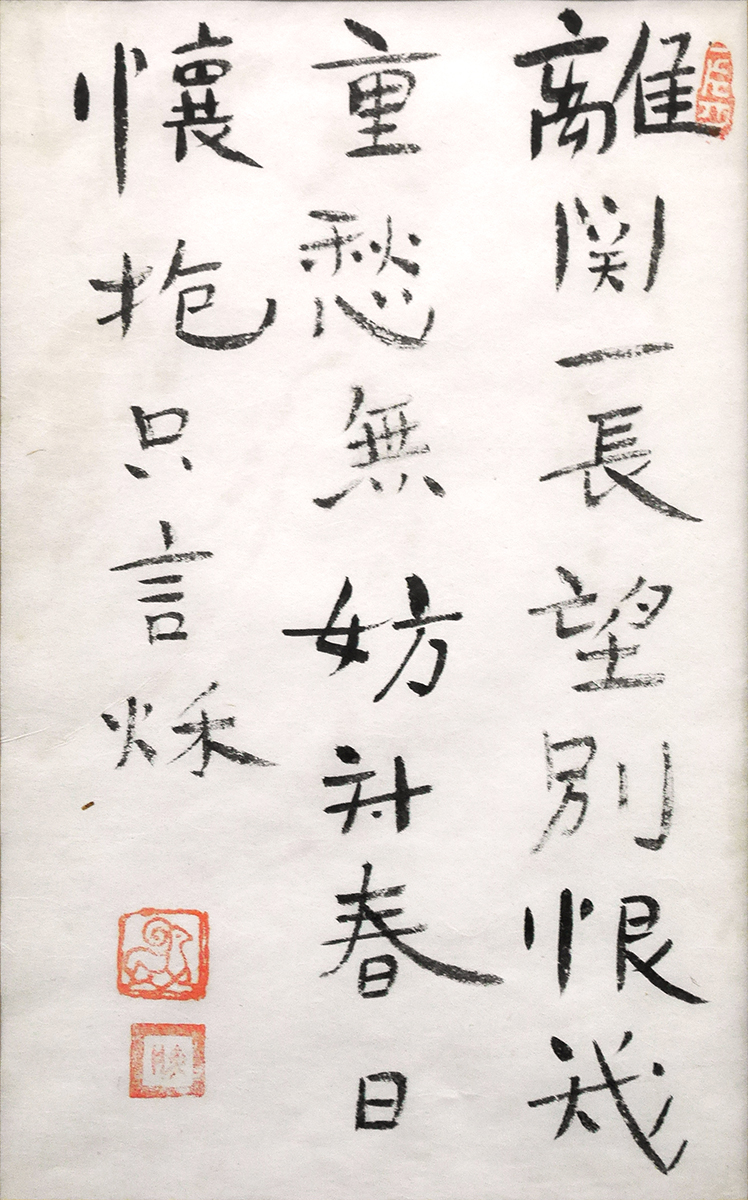 離関一長望別恨幾
重愁無妨対春日
懷抱只言秌